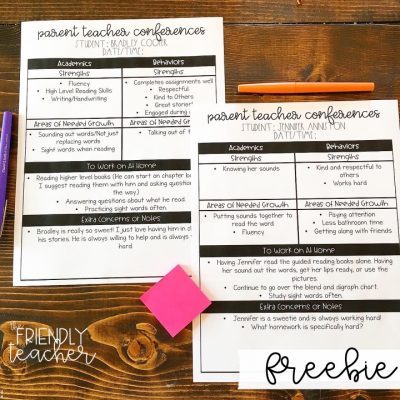 parent teacher conferences
STUDENT: BRADLEY COOPER
DATE/TIME:
Academics Behaviors
Strengths Strengths
Fluency
High Level Reading Skills
Writing/Handwriting
Completes assignments well
Respectful
Kind to Others
Great stories
Engaged during
Areas of Needed Growth Areas of Needed Growth
Sounding out words/Not just
replacing words
Sight words when reading
Talking out of
To Work on At Home
Reading higher level books (He can start on chapter
I suggest reading them with him and asking
the way.)
Answering questions about what he read.
Practicing sight words often.
Extra Concerns or Notes
Bradley is really so sweet! I just love having him in
his stories. He is always willing to help and is always
hard.
parent teacher conferences
STUDENT: JENNIFER
DATE/TIME:
Academics Behaviors
Strengths Strengths
Knowing her sounds
Kind and respectful to
others
Works hard
Areas of Needed Growth Areas of Needed Growth
Putting sounds together to
read the word.
Fluency
Paying attention
Less bathroom time
Getting along with friends
To Work on At Home
Having Jennifer read the guided reading books alone. Having
her sound out the words, get her lips ready, or use the
pictures.
Continue to go over the blend and digraph chart.
Study sight words often.
Extra Concerns or Notes
Jennifer is a sweetie and is always working hard!
What homework is specifically hard?
the
FRIENDLY
teacher
freebie